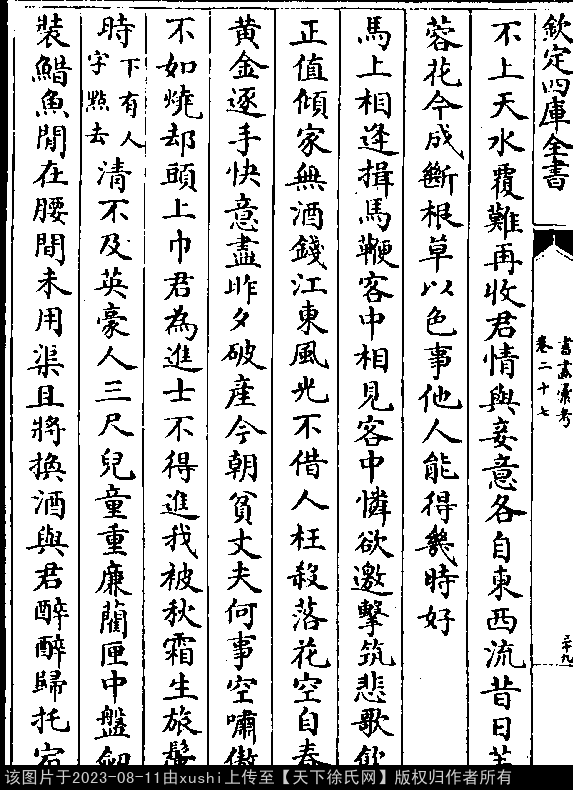 欽定四庫全書
書畫彙考
卷二十七
不上天水覆難再收君情與妾意各自東西流昔日芙
蓉花今成斷根草以色事他人能得幾時好
馬上相逢揖馬鞭客中相見客中憐欲邀擊筑悲歌飲
正值傾家無酒錢江東風光不借人枉殺落花空自春
黄金逐手快意盡昨夕破産今朝貧丈夫何事空嘯傲
不如燒却頭上巾君為進士不得進我被秋霜生旅鬢
時下有人字點去清不及英豪人三尺兒童重廉藺匣中盤劔
裝䱜魚閒在腰間未用渠且將換酒與君醉醉歸托宿
该图片于2023-08-11由xushi上传至【天下徐氏网】版权归作者所有